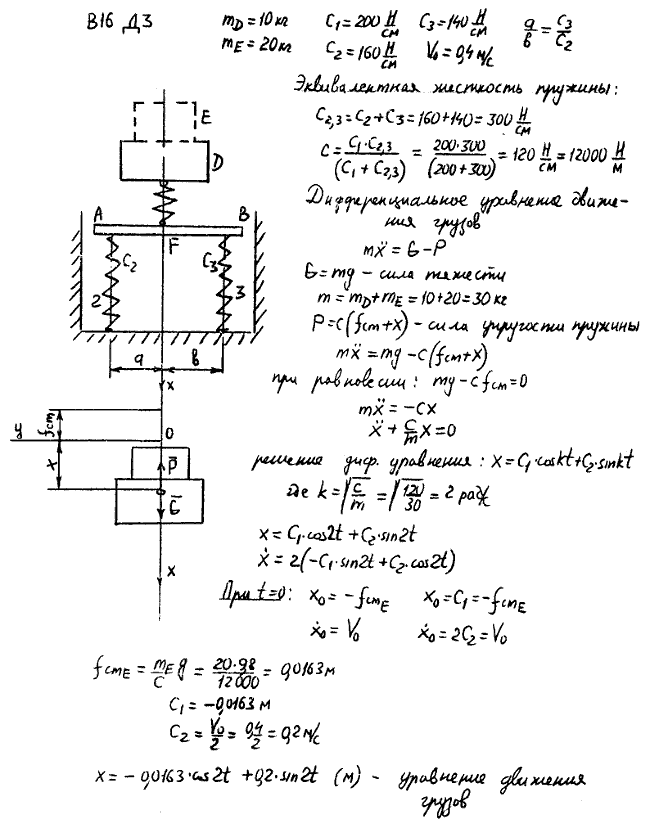 В16 Д3
m_D = 10 кг   C₁ = 200 Н/см   C₃ = 140 Н/см   a/в = C₃/C₂
m_E = 20 кг   C₂ = 160 Н/см   V₀ = 0,4 м/с
Эквивалентная жесткость пружины:
C₂,₃ = C₂ + C₃ = 160 + 140 = 300 Н/см
C = C₁·C₂,₃/(C₁ + C₂,₃) = 200·300/(200+300) = 120 Н/см = 12000 Н/м
Дифференциальное уравнение движе-
ния грузов
mẍ = G - P
G = mg - сила тяжести
m = m_D + m_E = 10 + 20 = 30 кг
P = c(fст + x) - сила упругости пружины
mẍ = mg - c(fст + x)
при равновесии: mg - c fст = 0
mẍ = -cx
ẍ + c/m x = 0
решение диф. уравнения: x = C₁·coskt + C₂·sinkt
где k = √(c/m) = √(120/30) = 2 рад/с
x = C₁·cos2t + C₂·sin2t
ẋ = 2(-C₁·sin2t + C₂·cos2t)
При t=0: x₀ = -fстE   x₀ = C₁ = -fстE
ẋ₀ = V₀   ẋ₀ = 2C₂ = V₀
fстE = m_E g/C = 20·9,8/12000 = 0,0163 м
C₁ = -0,0163 м
C₂ = V₀/2 = 0,4/2 = 0,2 м/с
x = -0,0163·cos2t + 0,2·sin2t (м) - уравнение движения
грузов
E
D
A
B
F
C₂
C₃
2
3
a
в
x
fст
y
O
x
P̄
Ḡ
x